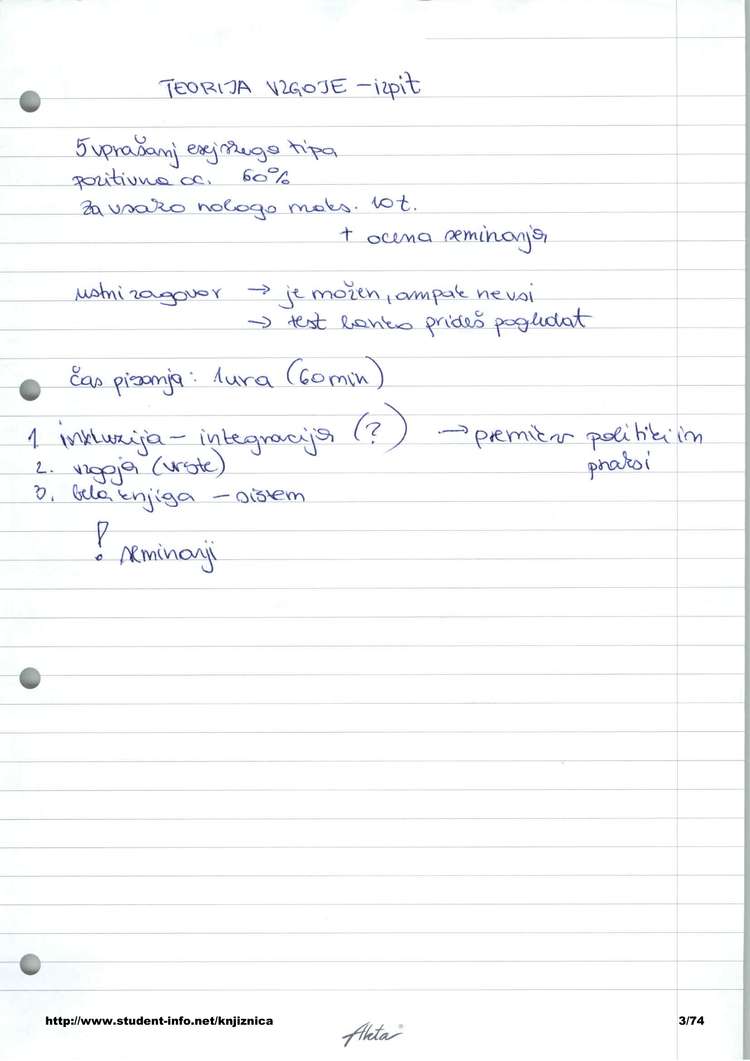 TEORIJA VZGOJE – izpit
5 vprašanj esejskega tipa
pozitivna oc. 60%
za vsako nalogo maks. 10 t.
+ ocena seminarja
ustni zagovor → je možen, ampak ne vsi
→ test lahko prideš pogledat
čas pisanja: 1 ura (60 min)
1 inkluzija – integracija (?) → premik v politiki in
praksi
2. vzgoja (vrste)
3. bela knjiga – sistem
! seminarji
http://www.student-info.net/knjiznica
Akta
3/74